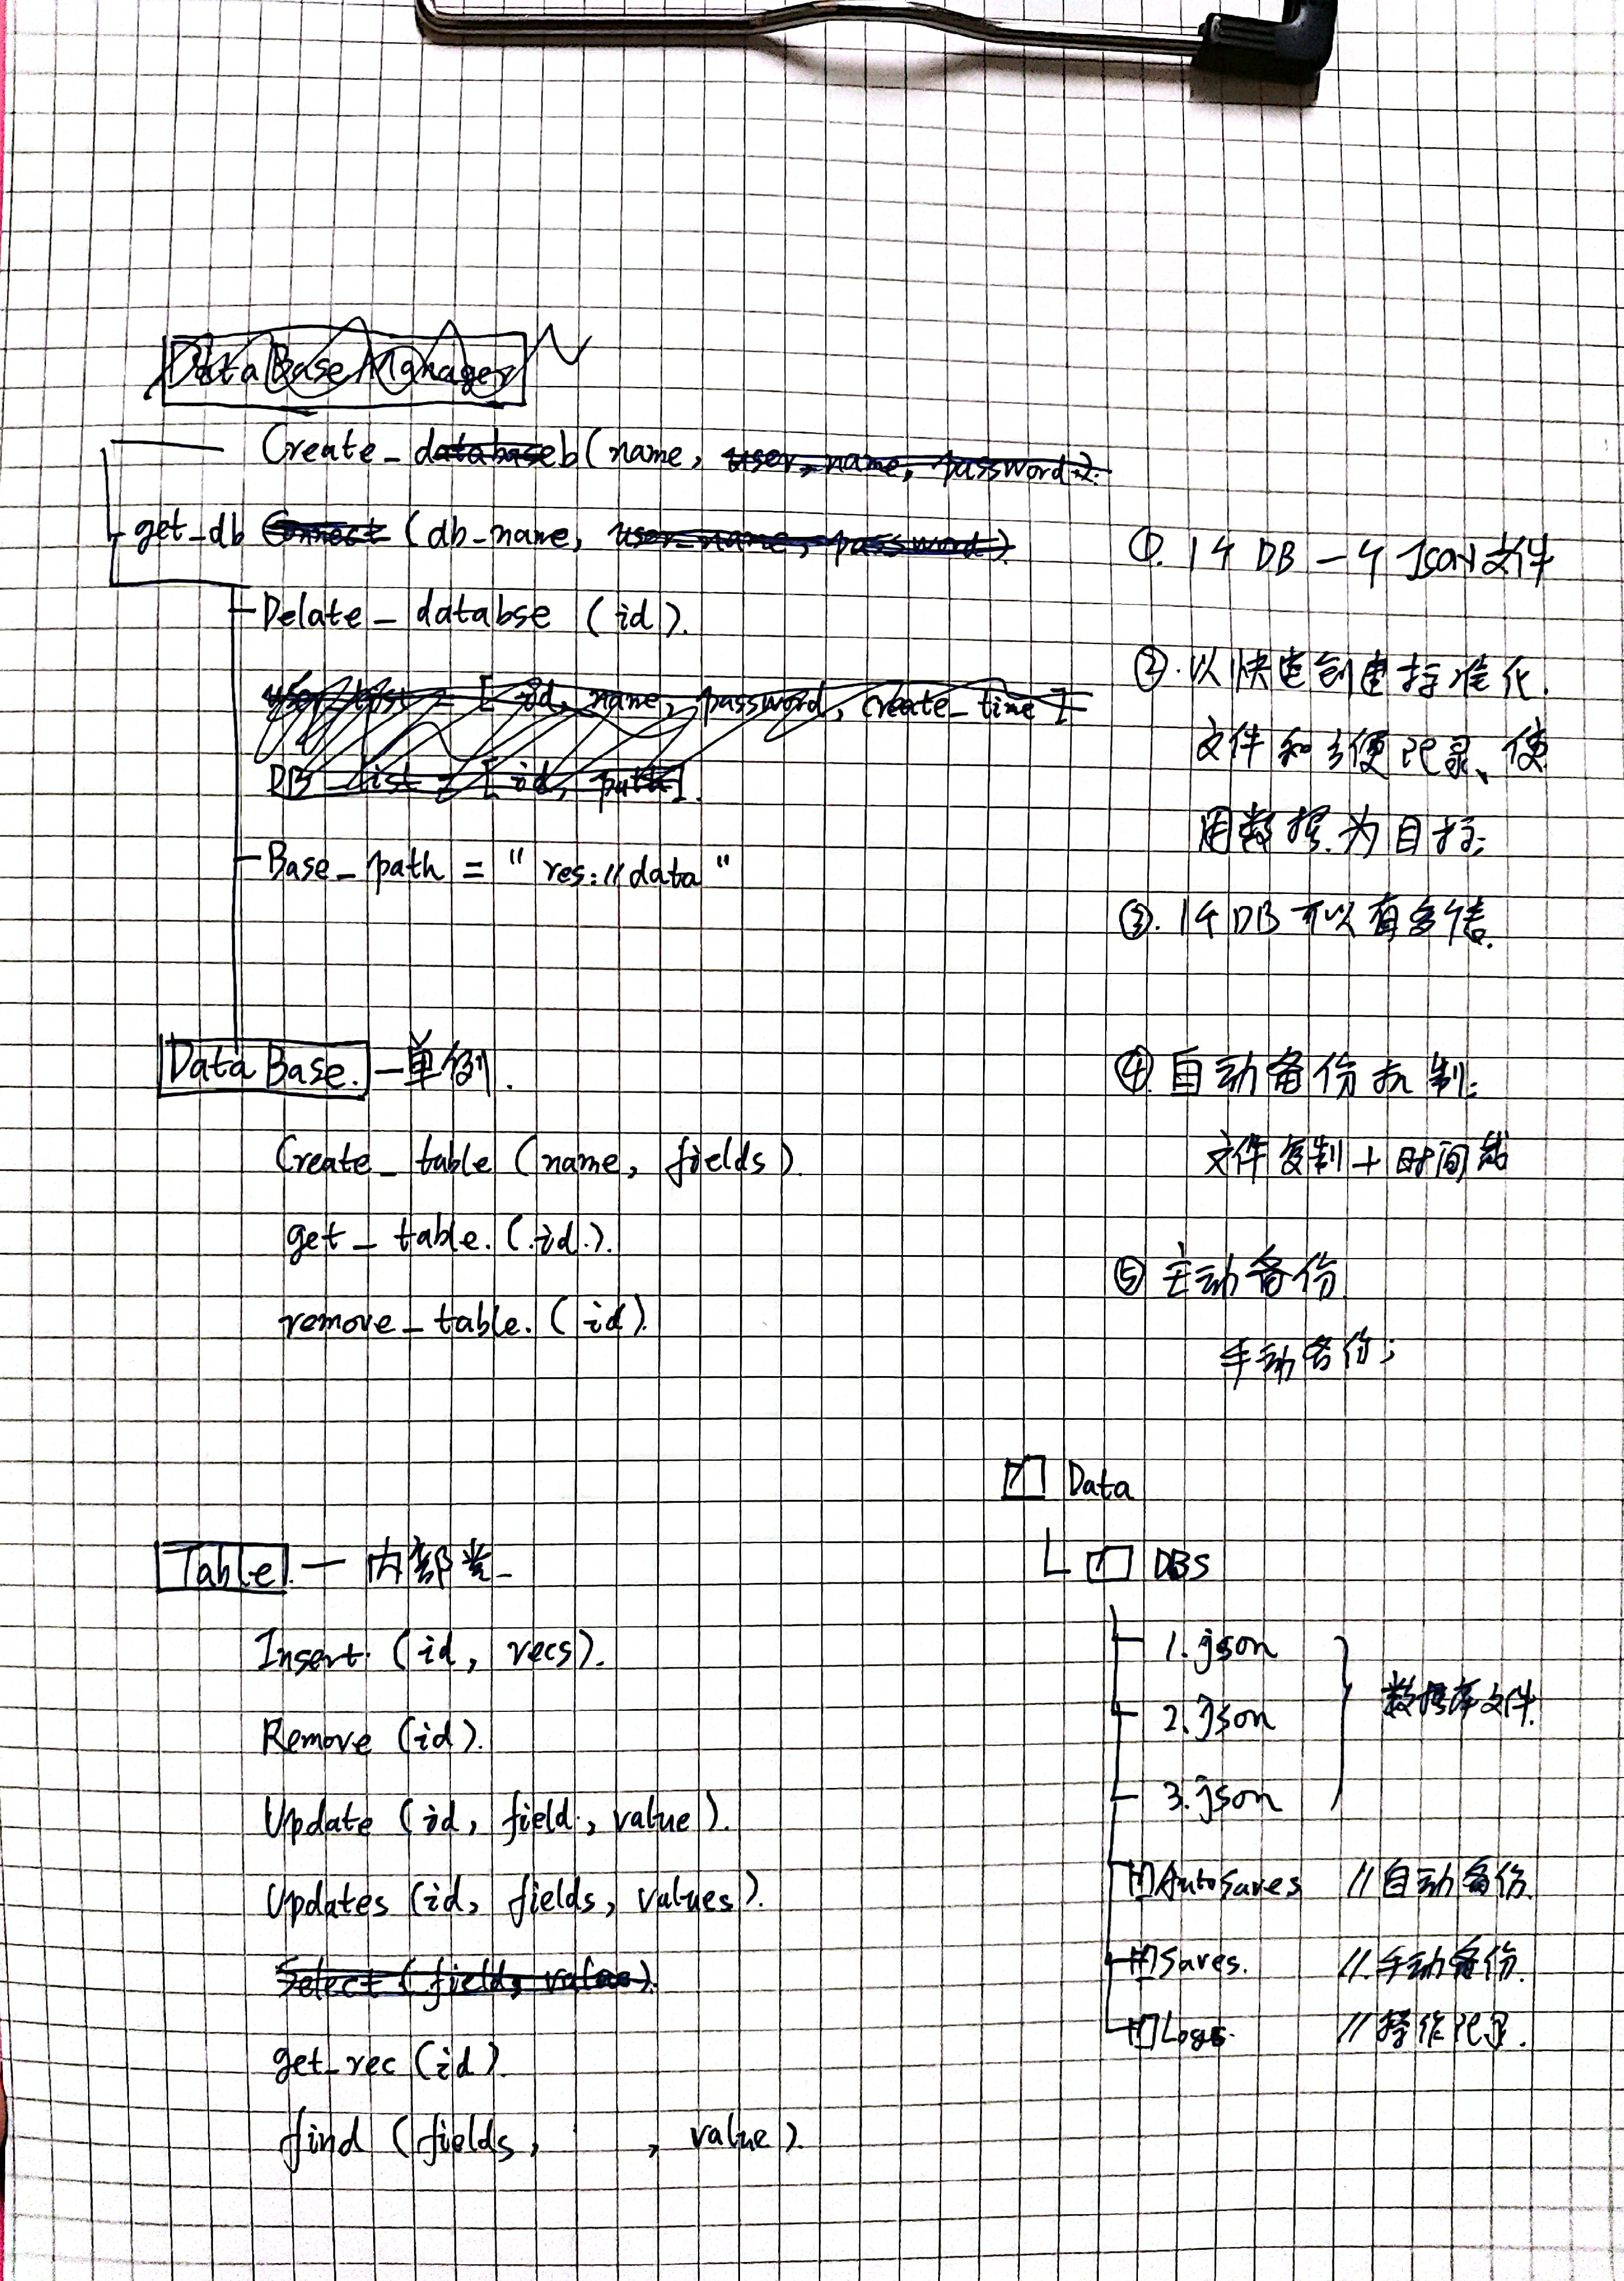 Data Base Manager
Create_databaseb(name, user_name, password).
get_db Connect (db_name, user_name, password).
Delate_databse (id).
user_list = [id, name, password, create_time]
DB_list = [id, path].
Base_path = "res://data"
Data Base. — 单例.
Create_table (name, fields).
get_table.(id).
remove_table.(id).
Table — 内部类
Insert (id, recs).
Remove (id).
Update (id, field, value).
Updates (id, fields, values).
Select (fields, value).
get_rec (id).
find (fields, , value).
①. 1个DB 一个Json文件
②. 以快速创建标准化.
文件和方便记录、使
用数据为目标;
③. 1个DB可以有多
④ 自动备份机制:
文件复制+时间戳
⑤ 主动备份
手动备份;
Data
DBS
1.json
2.json
3.json
数据库文件.
AutoSaves //自动备份.
Saves. //手动备份.
Logs. //操作记录.